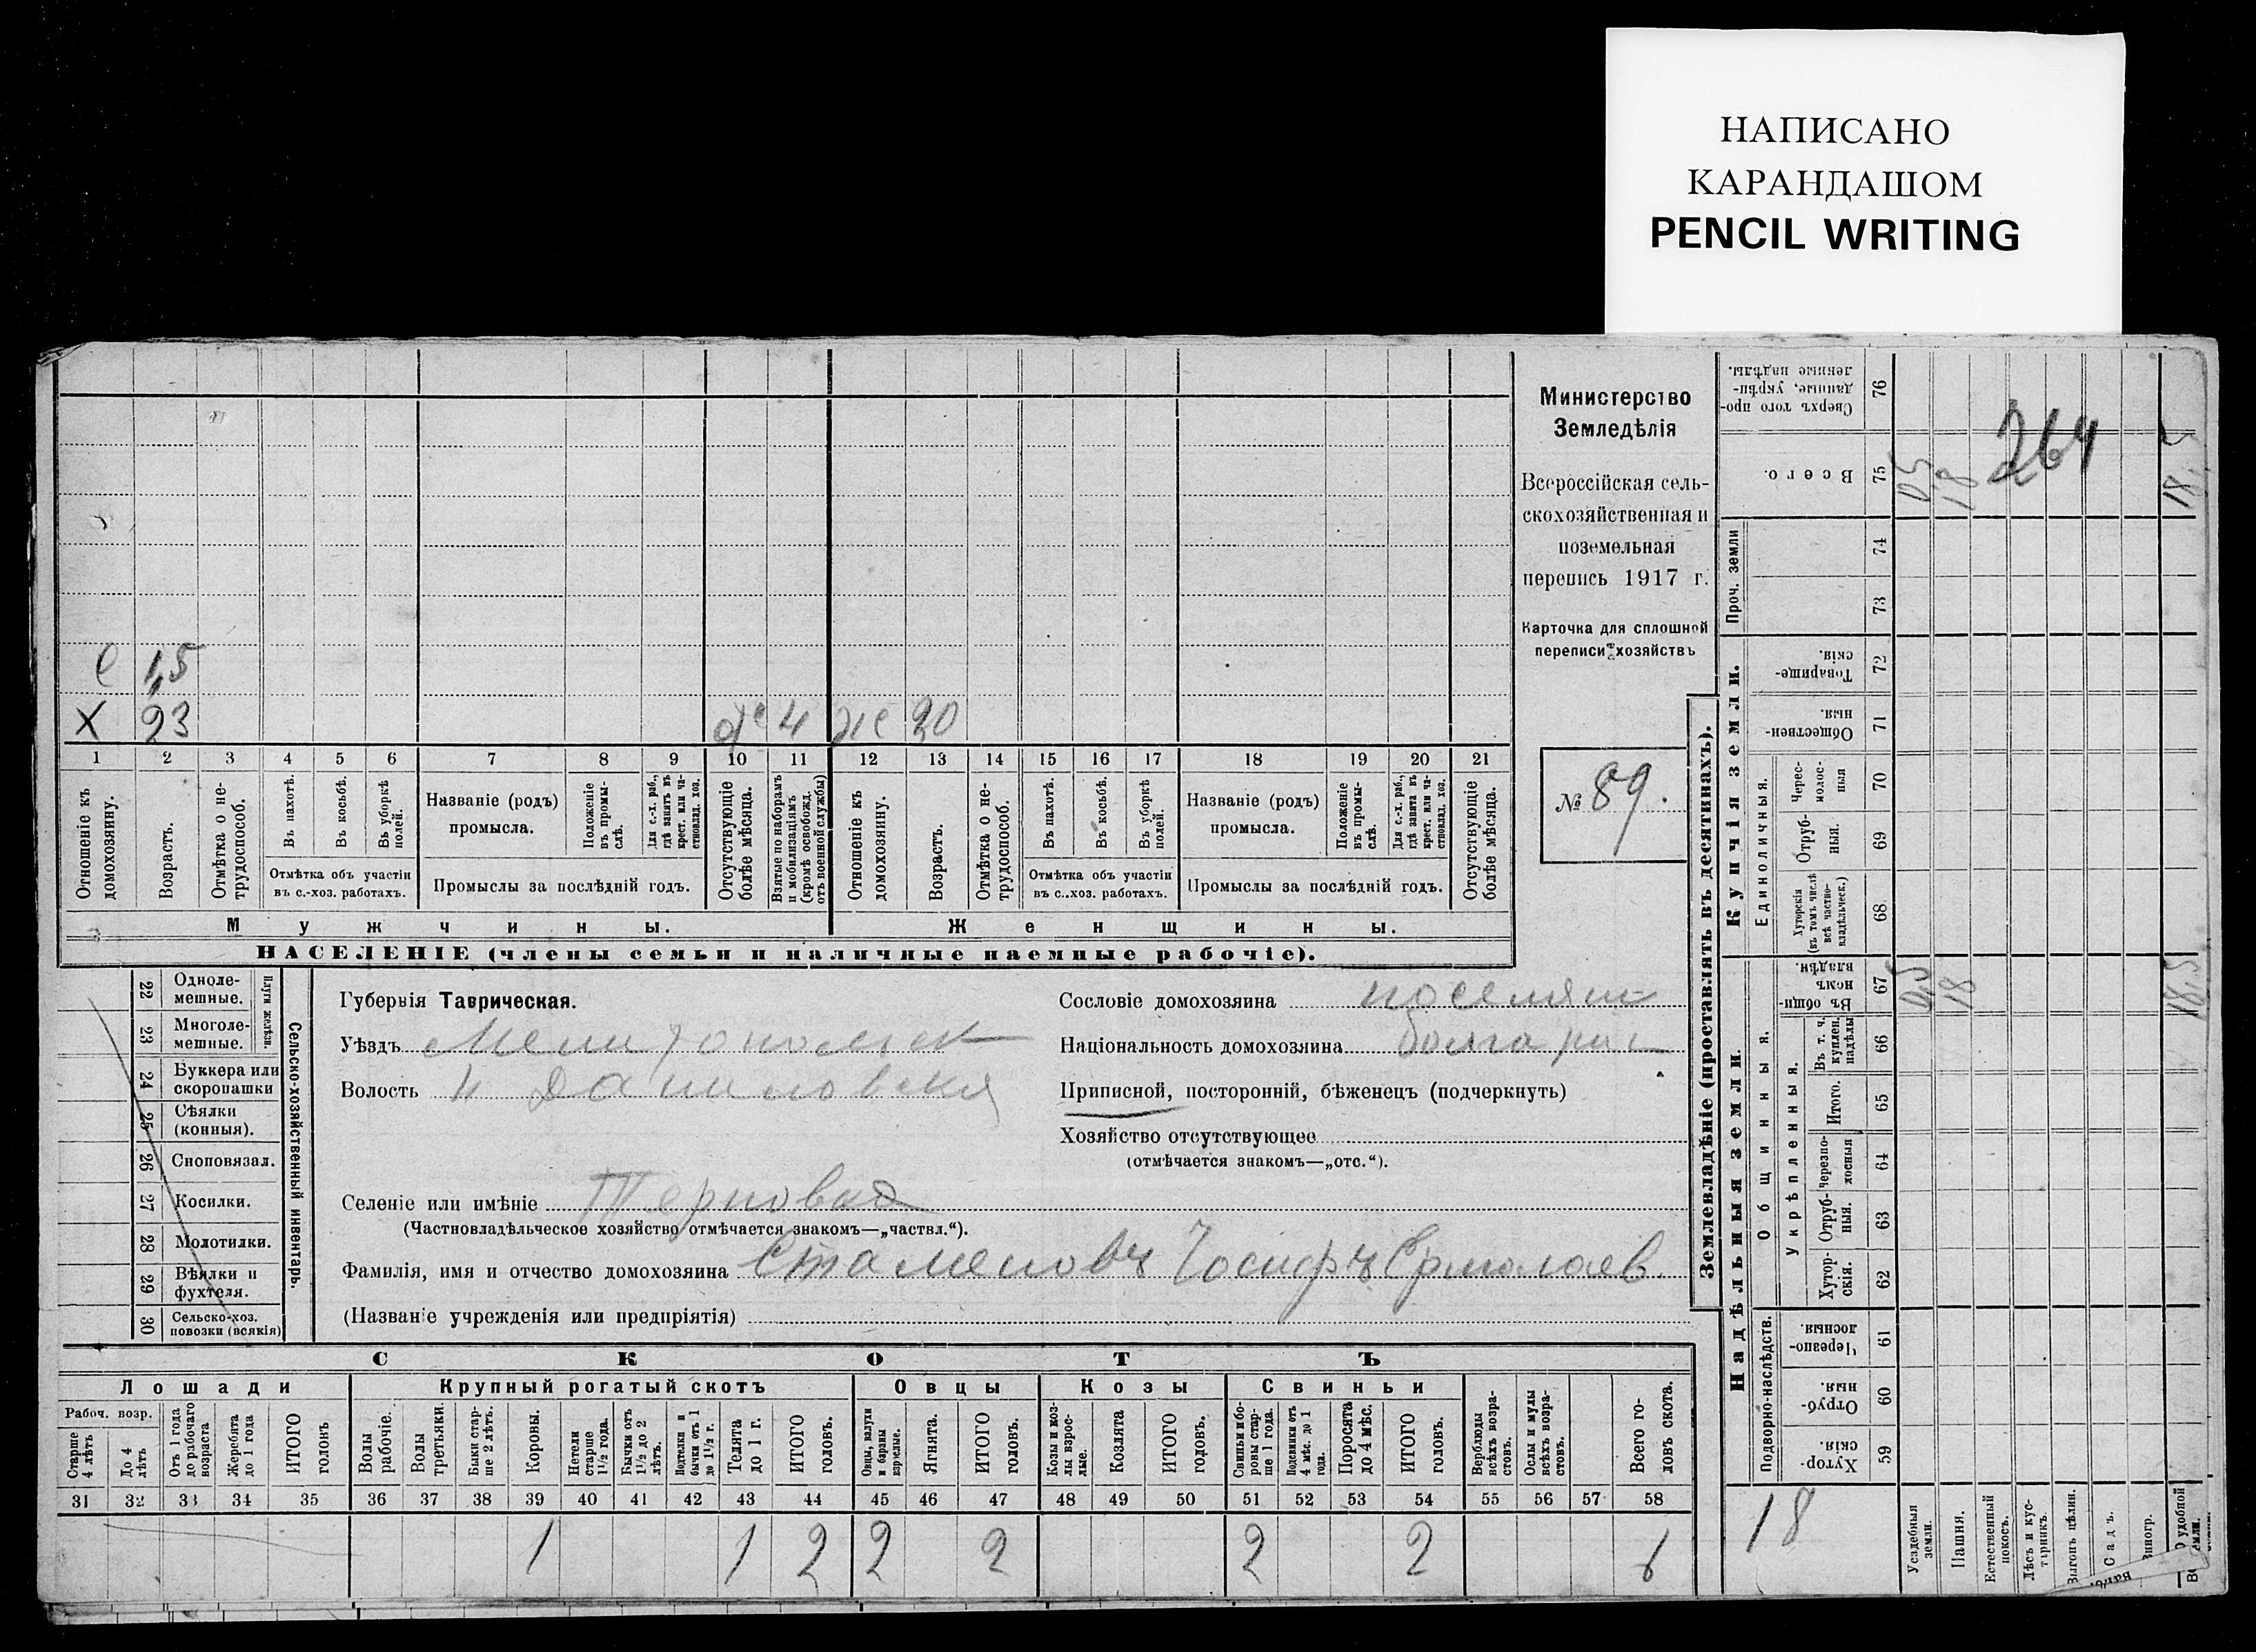 НАПИСАНО
КАРАНДАШОМ
PENCIL WRITING
Министерство
Земледѣлія
Всероссійская сель-
скохозяйственная и
поземельная
перепись 1917 г.
Карточка для сплошной
переписи хозяйствъ
№ 89.
264
С 1,5
X 23 4 ж 20
1 2 3 4 5 6 7 8 9 10 11 12 13 14 15 16 17 18 19 20 21
Отношеніе къ домохозяину.
Возрастъ.
Отмѣтка о не-трудоспособ.
Въ пахотѣ.
Въ косьбѣ.
Въ уборкѣ полей.
Отмѣтка объ участіи
въ с.-хоз. работахъ.
Названіе (родъ)
промысла.
Положеніе въ промы-слѣ.
Для с.-х. раб., гдѣ занятъ въ крест. или ча-стновлад. хоз.
Промыслы за послѣдній годъ.
Отсутствующіе болѣе мѣсяца.
Взятые по наборамъ и мобилизаціямъ (кромѣ освобожд. отъ военной службы)
Отношеніе къ домохозяину.
Возрастъ.
Отмѣтка о не-трудоспособ.
Въ пахотѣ.
Въ косьбѣ.
Въ уборкѣ полей.
Отмѣтка объ участіи
въ с.-хоз. работахъ.
Названіе (родъ)
промысла.
Положеніе въ промы-слѣ.
Для с.-х. раб., гдѣ занята въ крест. или ча-стновлад. хоз.
Промыслы за послѣдній годъ.
Отсутствующіе болѣе мѣсяца.
Мужчины. Женщины.
НАСЕЛЕНІЕ (члены семьи и наличные наемные рабочіе).
Сельско-хозяйственный инвентарь.
Плуги желѣзн.
22 Одноле-мешные.
23 Многоле-мешные.
24 Буккера или скоропашки
25 Сѣялки (конныя).
26 Сноповязал.
27 Косилки.
28 Молотилки.
29 Вѣялки и фухтеля.
30 Сельско-хоз. повозки (всякія)
Губернія Таврическая.
Уѣздъ Мелитопольск
Волость Н Даниловская
Селеніе или имѣніе Терновка
(Частновладѣльческое хозяйство отмѣчается знакомъ—„частвл.“).
Фамилія, имя и отчество домохозяина Стаменовъ Іосифъ Ермолаев.
(Названіе учрежденія или предпріятія)
Сословіе домохозяина поселян
Національность домохозяина болгарин
Приписной, посторонній, бѣженецъ (подчеркнуть)
Хозяйство отсутствующее
(отмѣчается знакомъ—„отс.“).
СКОТЪ
Лошади Крупный рогатый скотъ Овцы Козы Свиньи
Рабоч. возр.
Старше 4 лѣтъ
До 4 лѣтъ
Отъ 1 года до рабочаго возраста
Жеребята до 1 года
ИТОГО головъ
Волы рабочіе.
Волы третьяки.
Быки стар-ше 2 лѣтъ.
Коровы.
Нетели старше 1½ года.
Бычки отъ 1½ до 2 лѣтъ.
Подтелки и бычки отъ 1 до 1½ г.
Телята до 1 г.
ИТОГО головъ.
Овцы, валухи и бараны взрослые.
Ягнята.
ИТОГО головъ.
Козы и коз-лы взрос-лые.
Козлята
ИТОГО головъ.
Свиньи и бо-ровы стар-ше 1 года.
Подсвинки отъ 4 мѣс. до 1 года.
Поросята до 4 мѣс.
ИТОГО головъ.
Верблюды всѣхъ возра-стовъ.
Ослы и мулы всѣхъ возра-стовъ.
Всего го-ловъ скота.
31 32 33 34 35 36 37 38 39 40 41 42 43 44 45 46 47 48 49 50 51 52 53 54 55 56 57 58
1 1 2 2 2 2 2 6
Землевладѣніе (проставлять въ десятинахъ).
Надѣльныя земли. Купчія земли. Проч. земли
Подворно-наслѣдств.
Общинныя.
Укрѣпленныя.
Единоличныя.
Хутор-скія. 59
Отруб-ныя. 60
Черезпо-лосныя 61
Хутор-скія. 62
Отруб-ныя. 63
Черезпо-лосныя 64
Итого. 65
Въ т. ч. куплен. надѣлы 66
Въ общин-номъ владѣн. 67
Хуторскія (въ томъ числѣ всѣ частно-владѣльческ.) 68
Отруб-ныя. 69
Черес-полос-ныя 70
Обществен-ныя. 71
Товарище-скія. 72
73
74
Всего. 75
Сверхъ того про-данные, укрѣп-ленные надѣлы. 76
18
Усадебныя земли.
Пашня.
Естественный покосъ.
Лѣсъ и кус-тарникъ.
Выгонъ цѣлин.
Садъ.
Виногр.
удобной
0,5 18 18,5
0,5 18 18,5